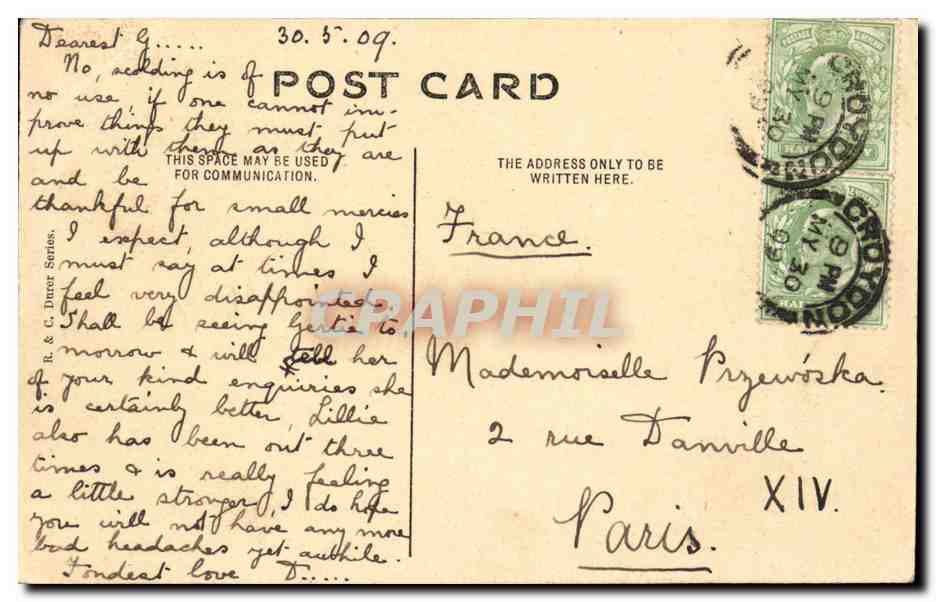 Dearest G..... 30.5.09.
No, scolding is of
no use, if one cannot im-
prove things they must put
up with them as they are
and be
thankful for small mercies
I expect, although I
must say at times I
feel very disappointed.
Shall be seeing Gertie to.
morrow & will tell her
of your kind enquiries she
is certainly better, Lillie
also has been out three
times & is really feeling
a little stronger, I do hope
you will not have any more
bad headaches yet awhile.
Fondest love D.....
POST CARD
THIS SPACE MAY BE USED
FOR COMMUNICATION.
THE ADDRESS ONLY TO BE
WRITTEN HERE.
R. & C. Durer Series.
France.
Mademoiselle Przewóska.
2 rue Danville
XIV.
Paris.
CROYDON
9 PM
MY 30
09
CROYDON
9 PM
MY 30
09
CRAPHIL